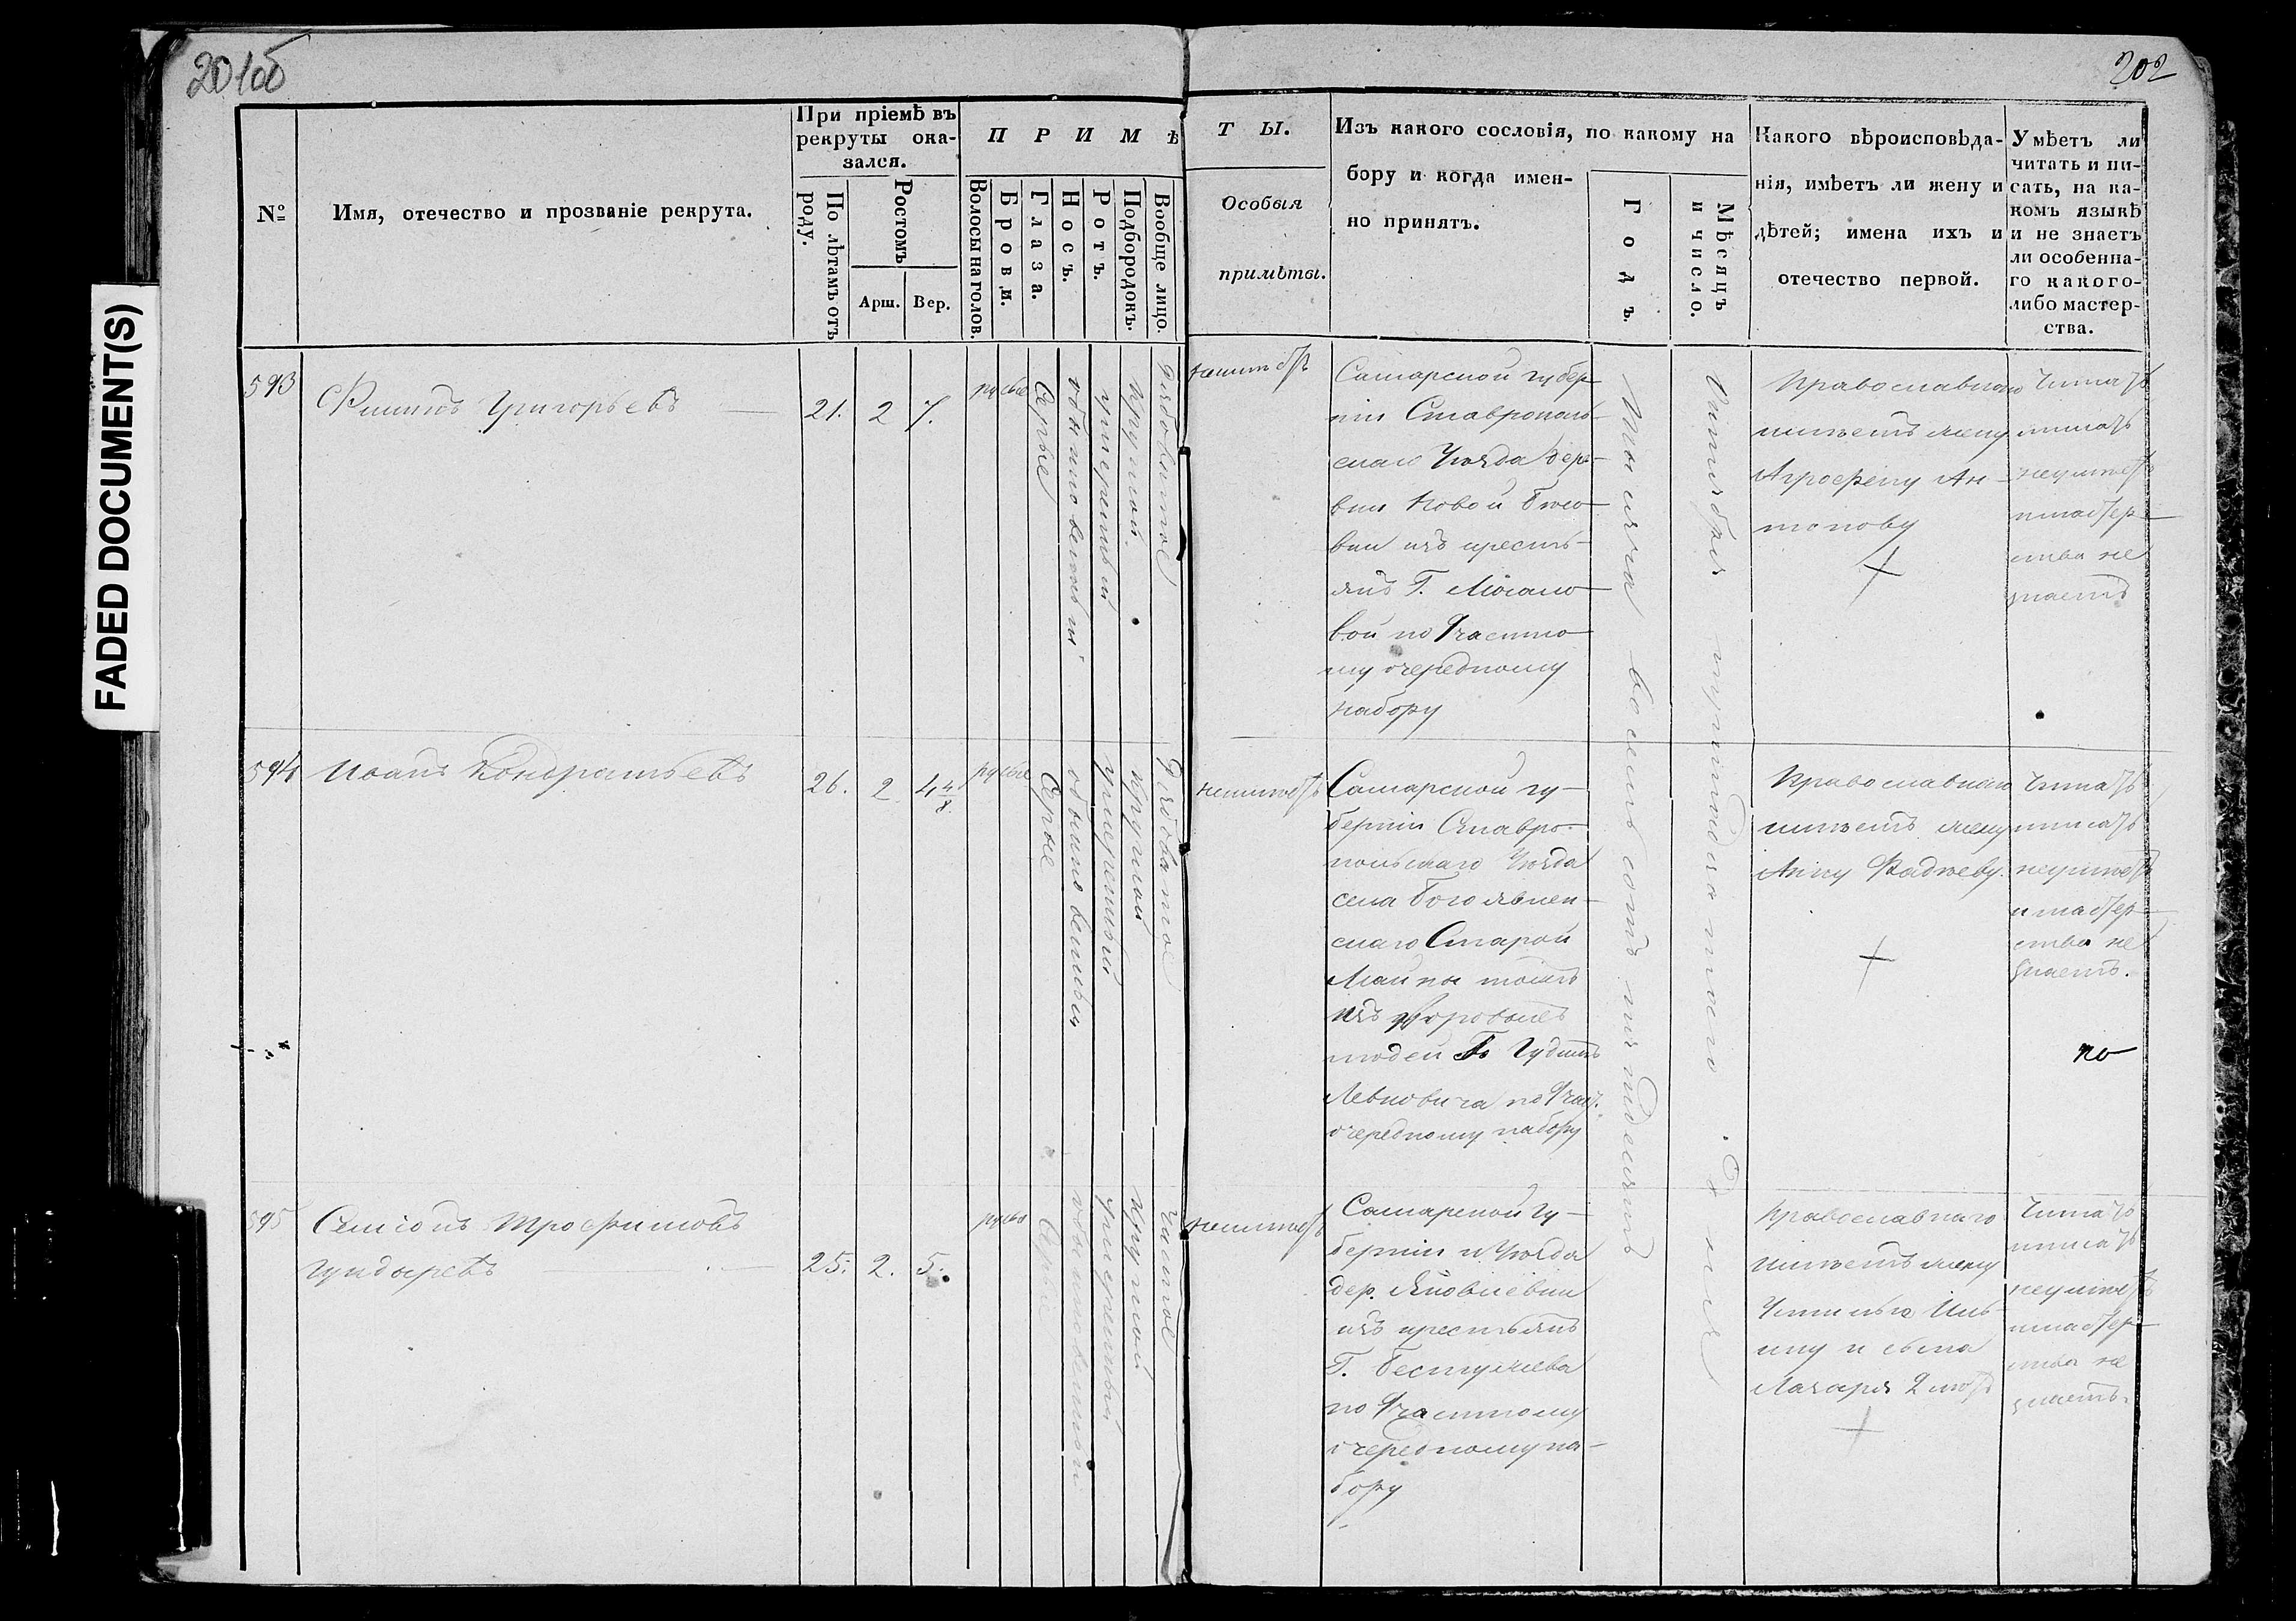 201об
202
FADED DOCUMENT(S)
№
Имя, отечество и прозваніе рекрута.
При пріемѣ въ
рекруты ока-
зался.
По лѣтамъ отъ
роду.
Ростомъ
Арш.
Вер.
П Р И М Ѣ
Волосы на голов.
Брови.
Глаза.
Носъ.
Ротъ.
Подбородокъ.
Вообще лицо.
Т Ы.
Особыя
примѣты.
Изъ какого сословія, по какому на
бору и когда имен-
но принятъ.
Годъ.
Мѣсяцъ
и число.
Какого вѣроисповѣда-
нія, имѣетъ ли жену и
дѣтей; имена ихъ и
отечество первой.
Умѣетъ ли
читать и пи-
сать, на ка-
комъ языкѣ
и не знаетъ
ли особенна-
го какого-
либо мастер-
ства.
593
Филипъ Григорьевъ
21.
2
7.
русые
Серые
обыкновенный
умеренный
круглой
Рядоватое
неимеетъ
Самарской губер-
ніи Ставрополь-
скаго Уѣзда дере-
вни Новой
вки изъ кресть-
янъ Г.
вой по Частно-
му очередному
набору
Тысяча восемь сотъ пятдесятъ
Октября тридцатаго дня
Православнаго
имѣетъ жену
Агрофену Ан-
тонову
Читать
писать
неумѣетъ
и мастер-
ства не
знаетъ
594
Иванъ Кондратьевъ
26.
2
4 4/8
русые
Серые
обыкновенный
умеренный
круглой
Рядоватое
неимѣетъ
Самарской гу-
берніи Ставро-
польскаго Уѣзда
села Богоявлен-
скаго Старой
Майны тожъ
изъ дворовыхъ
людей Гг.
Левковича по Част.
очередному набору
Православнаго
имѣетъ жену
Анну Фадѣеву.
Читать
писать
неумѣетъ
и мастер-
ства не
знаетъ.
по
595
Семіонъ Трофимовъ
Гундыревъ
25.
2.
5.
русые
Серые
обыкновенный
умеренный
круглой
чистое
неимѣетъ
Самарской Гу-
берніи и Уѣзда
дер. Яковлевки
изъ крестьянъ
Г. Бестужева
по Частному
очередному на-
бору
Православнаго
имѣетъ жену
Устинью Иль-
ину и сына
Лазаря 2 лѣтъ
Читать
писать
неумѣетъ
и мастер-
ства не
знаетъ.